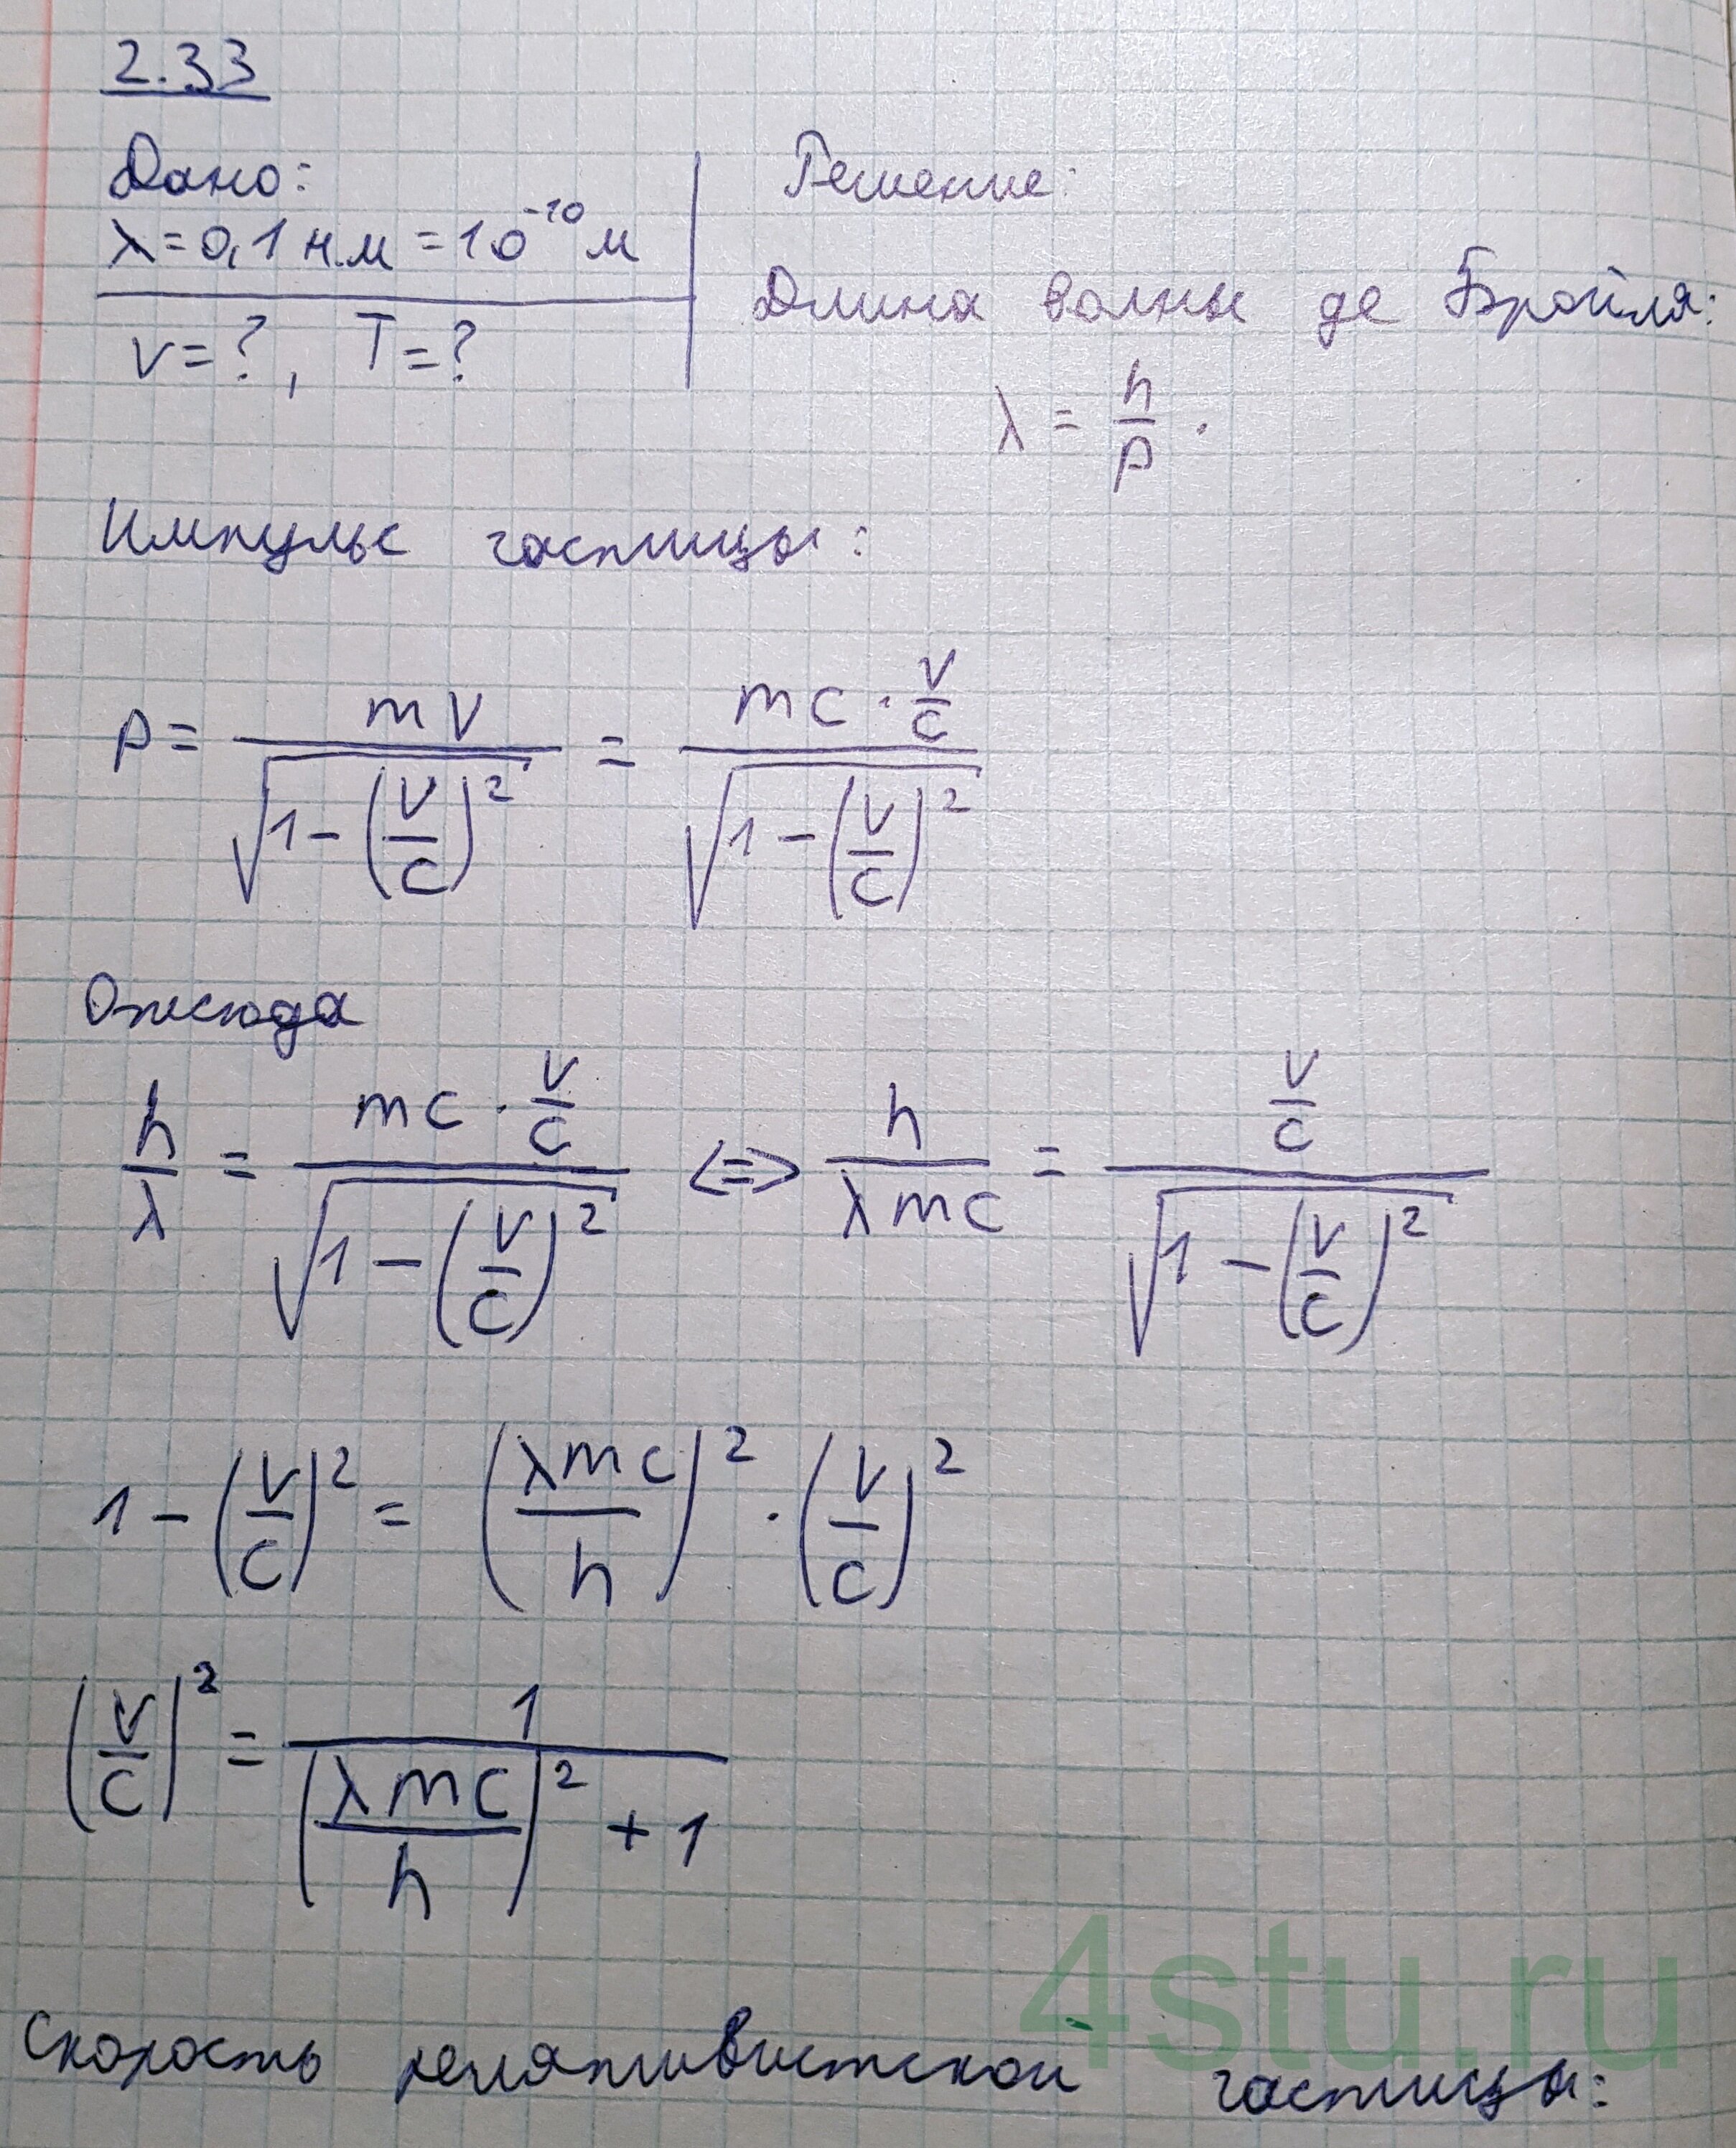 2.33
Дано:
λ = 0,1 н.м = 10⁻¹⁰ м
v = ?, T = ?
Решение:
Длина волны де Бройля:
λ = h/p .
Импульс частицы:
p = mv / √(1 − (v/c)²) = mc · v/c / √(1 − (v/c)²)
Отсюда
h/λ = mc · v/c / √(1 − (v/c)²) <=> h/λmc = v/c / √(1 − (v/c)²)
1 − (v/c)² = (λmc/h)² · (v/c)²
(v/c)² = 1 / ((λmc/h)² + 1)
4stu.ru
Скорость релятивистской частицы: